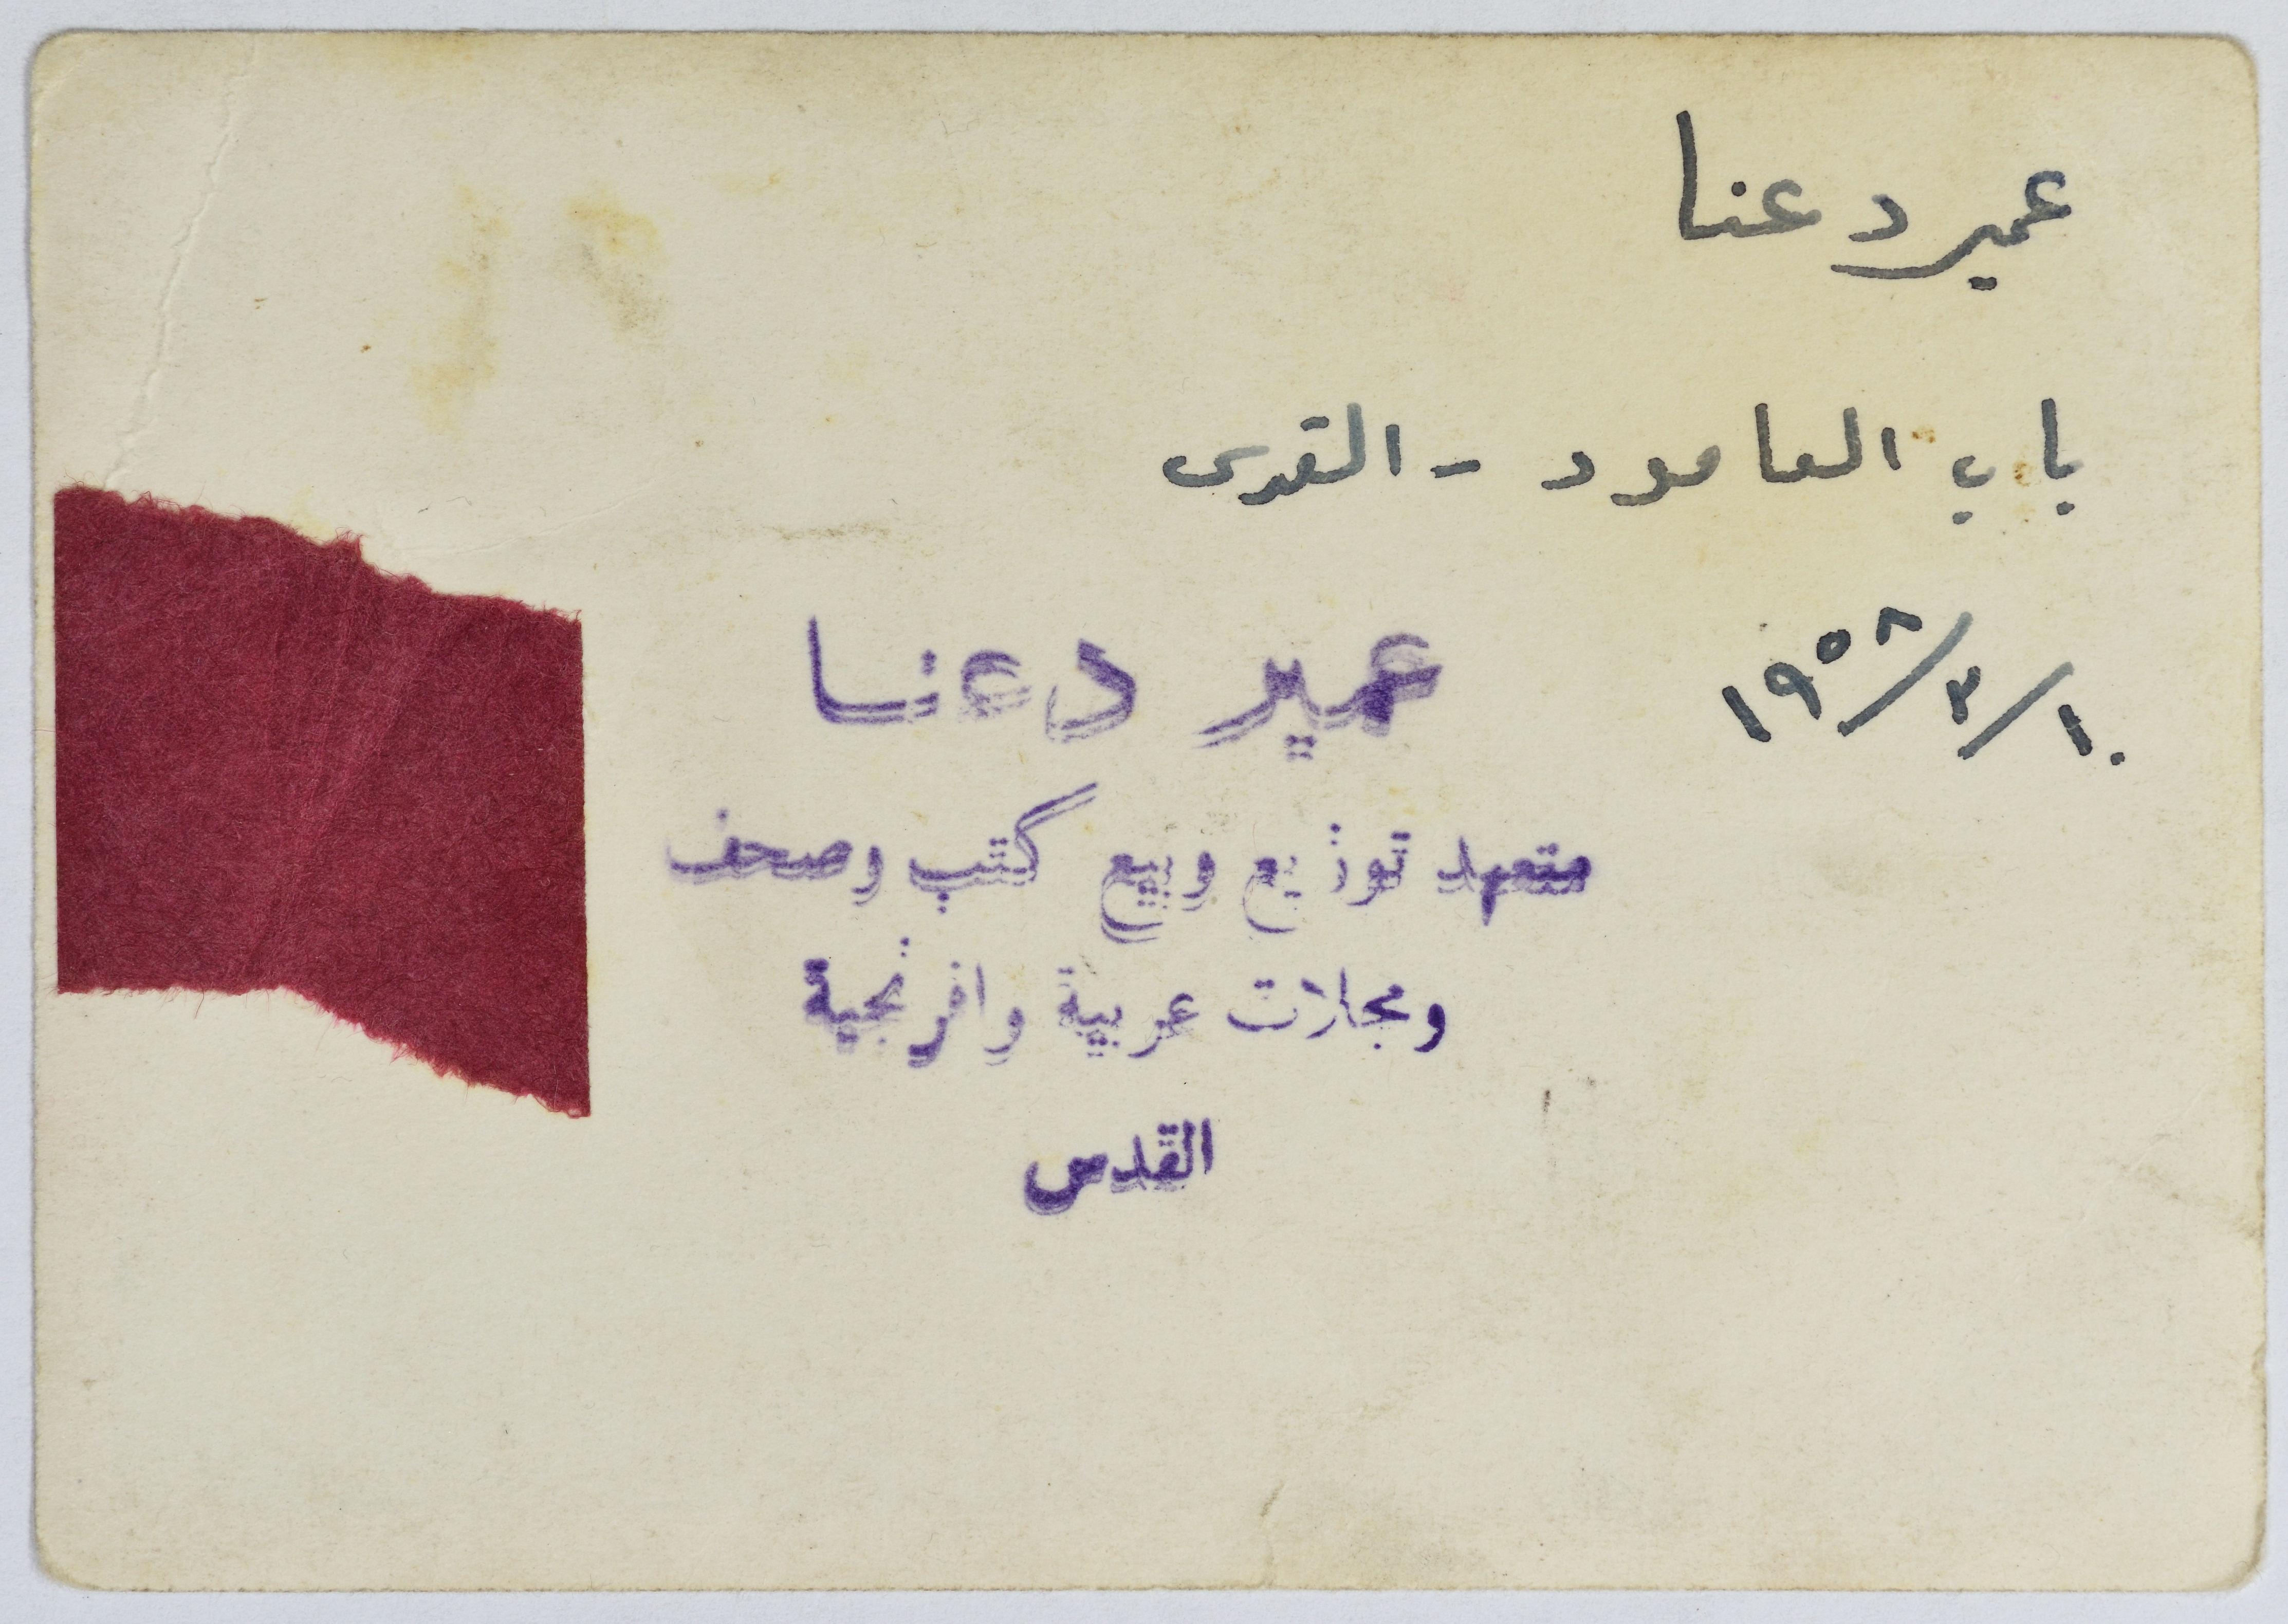 عمير دعنا
باب العامود - القدس
١٠/٣/١٩٥٨
عمير دعنا
متعهد توزيع وبيع كتب وصحف
ومجلات عربية وافرنجية
القدس